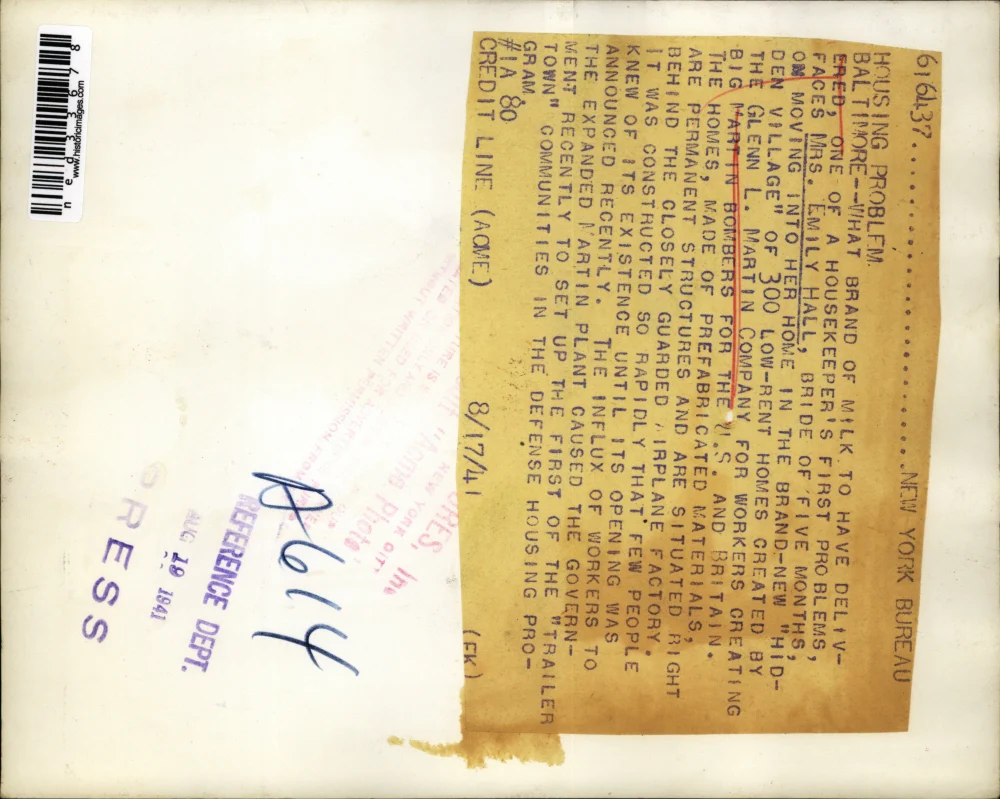 616437..................NEW YORK BUREAU
HOUSING PROBLEM.
BALTIMORE--WHAT BRAND OF MILK TO HAVE DELIV-
ERED, ONE OF A HOUSEKEEPER'S FIRST PROBLEMS,
FACES MRS. EMILY HALL, BRIDE OF FIVE MONTHS,
ON MOVING INTO HER HOME IN THE BRAND-NEW "HID-
DEN VILLAGE" OF 300 LOW-RENT HOMES CREATED BY
THE GLENN L. MARTIN COMPANY FOR WORKERS CREATING
BIG MARTIN BOMBERS FOR THE U.S. AND BRITAIN.
THE HOMES, MADE OF PREFABRICATED MATERIALS,
ARE PERMANENT STRUCTURES AND ARE SITUATED RIGHT
BEHIND THE CLOSELY GUARDED AIRPLANE FACTORY.
IT WAS CONSTRUCTED SO RAPIDLY THAT FEW PEOPLE
KNEW OF ITS EXISTENCE UNTIL ITS OPENING WAS
ANNOUNCED RECENTLY. THE INFLUX OF WORKERS TO
THE EXPANDED MARTIN PLANT CAUSED THE GOVERN-
MENT RECENTLY TO SET UP THE FIRST OF THE "TRAILER
TOWN" COMMUNITIES IN THE DEFENSE HOUSING PRO-
GRAM.
#1A 80
CREDIT LINE (ACME) 8/17/41 (EK)
A614
REFERENCE DEPT.
AUG 19 1941
RESS
"Acme Photo"
NEW YORK CIT
WRITTEN PERMISSION
www.historicimages.com
ned33678